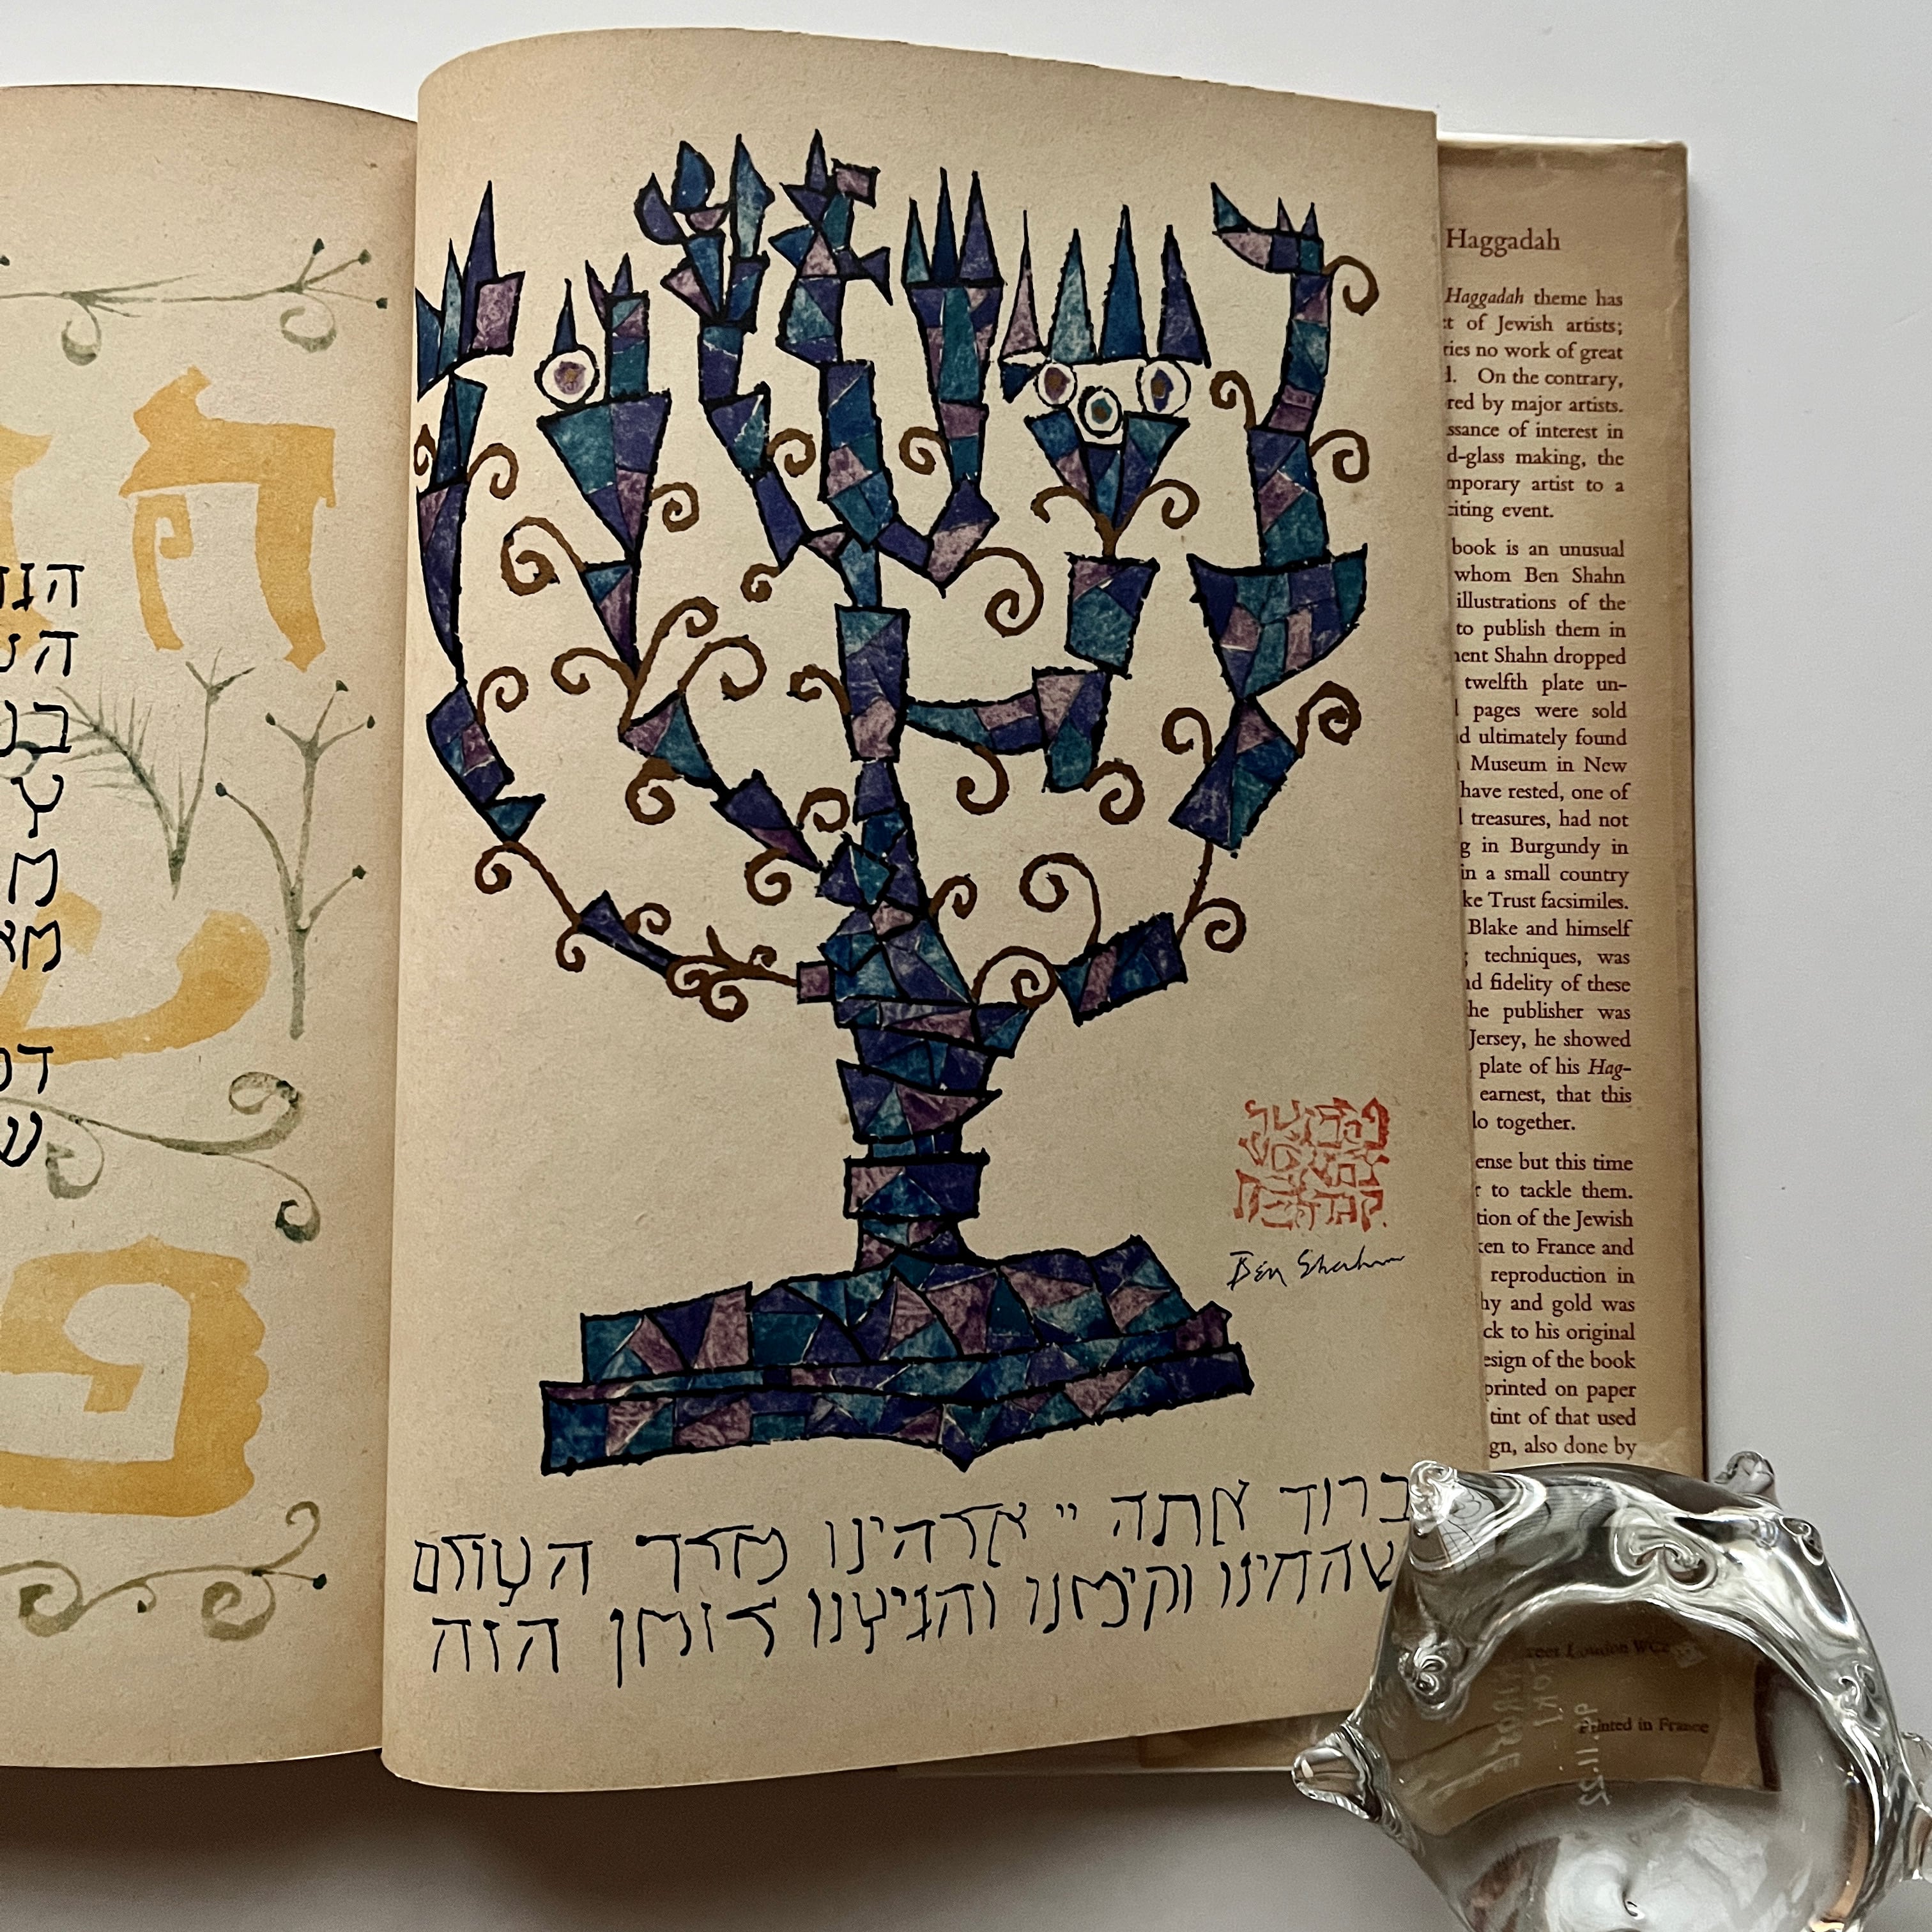 הנד
הש
בנ
ע
מ
מא
דם
ש
Ben Shahn
ברוך אתה יי אלהינו מלך העולם
שהחינו וקימנו והגיענו לזמן הזה
Haggadah
Haggadah theme has
t of Jewish artists;
ries no work of great
d. On the contrary,
red by major artists.
ssance of interest in
d-glass making, the
mporary artist to a
citing event.
book is an unusual
whom Ben Shahn
illustrations of the
to publish them in
ment Shahn dropped
twelfth plate un-
l pages were sold
d ultimately found
Museum in New
have rested, one of
l treasures, had not
g in Burgundy in
in a small country
ke Trust facsimiles.
Blake and himself
techniques, was
nd fidelity of these
the publisher was
Jersey, he showed
plate of his Hag-
earnest, that this
do together.
ense but this time
r to tackle them.
tion of the Jewish
ken to France and
reproduction in
hy and gold was
ck to his original
esign of the book
printed on paper
tint of that used
gn, also done by
reet London WC2
Printed in France